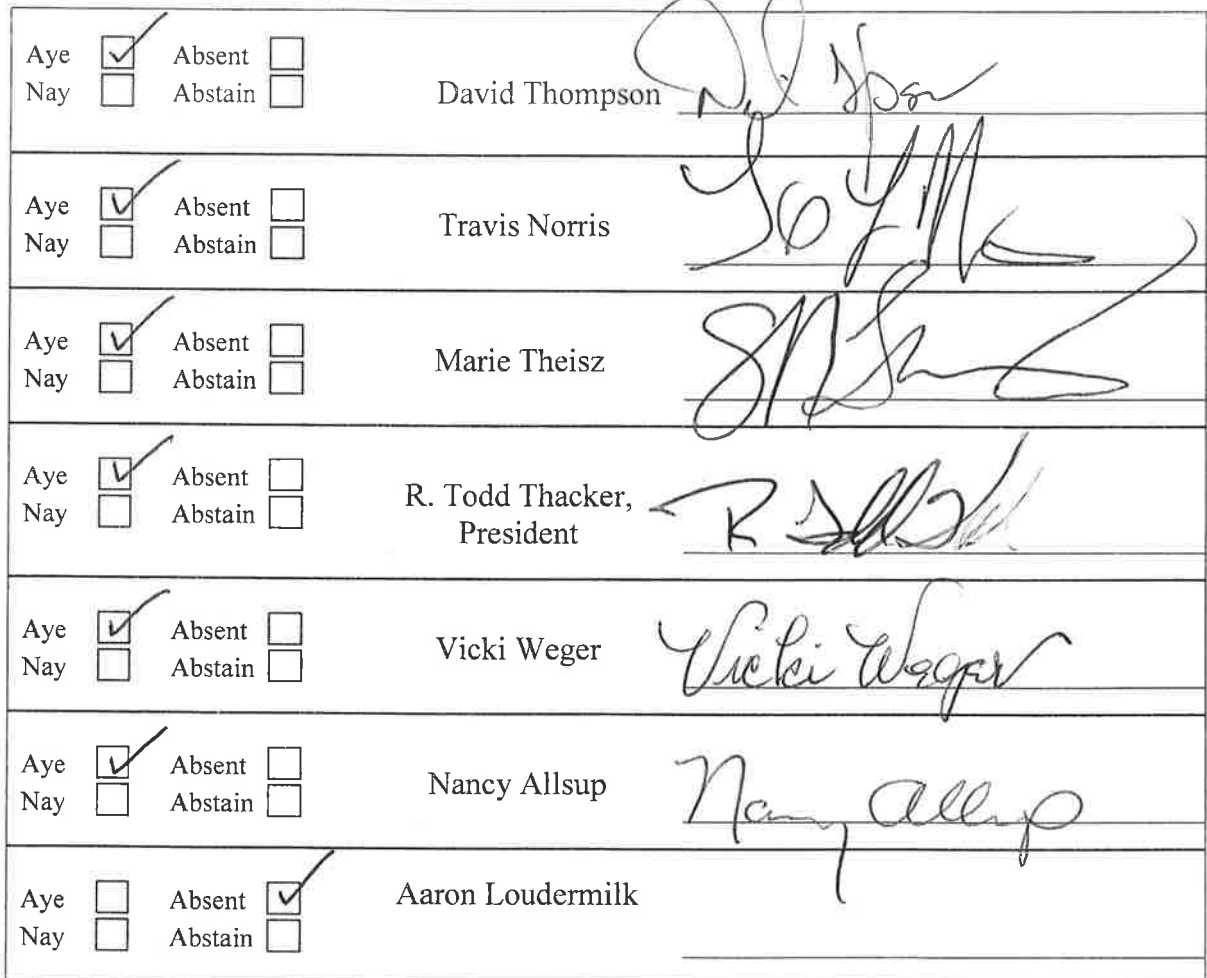 Aye Absent
Nay Abstain
David Thompson
Aye Absent
Nay Abstain
Travis Norris
Aye Absent
Nay Abstain
Marie Theisz
Aye Absent
Nay Abstain
R. Todd Thacker,
President
R Todd
Aye Absent
Nay Abstain
Vicki Weger
Vicki Weger
Aye Absent
Nay Abstain
Nancy Allsup
Nancy Allsup
Aye Absent
Nay Abstain
Aaron Loudermilk